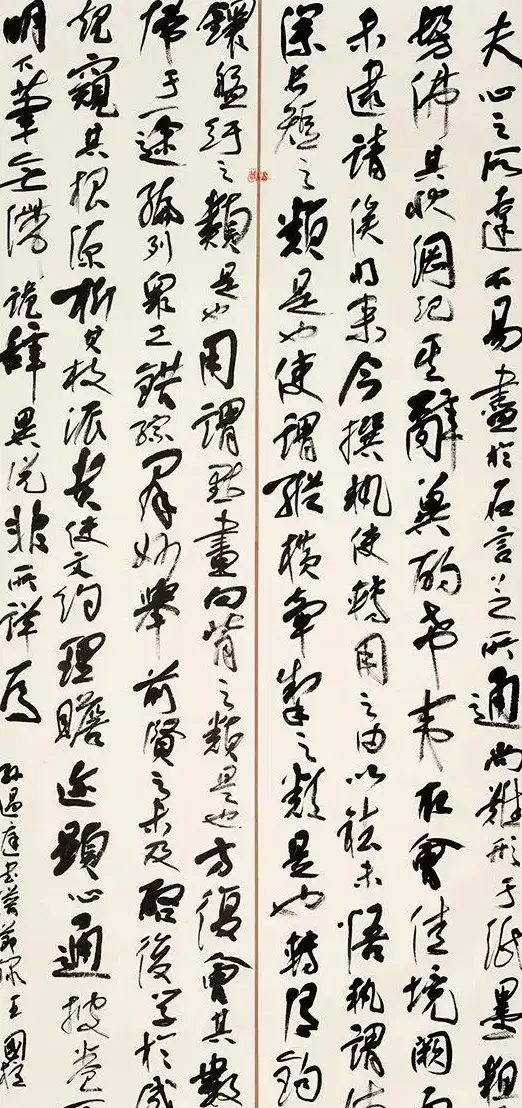 夫心之所達不易盡於名言言之所通尚難形于紙墨粗
髣彿其狀綱紀其辭冀酌希夷取會佳境闕而
未逮請俟將來今撰執使轉用之由以祛未悟執謂
長短之類是也使謂縱橫牽掣之類是也轉謂鈎
鐶盤紆之類是也用謂點畫向背之類是也方復會其數
歸于一途編列衆工錯綜羣妙舉前賢之未及啓後學於成
規窺其根源析其枝派貴使文約理贍迹顯心通披卷可
明下筆無滯詭辭異說非所詳焉
孫過庭書譜節錄王國